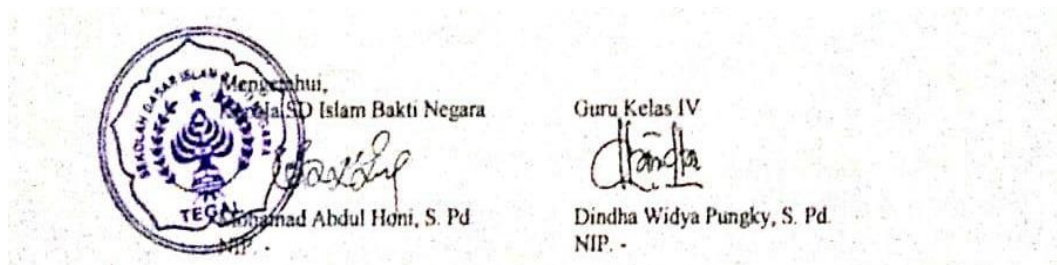 Mengetahui,
Kepala SD Islam Bakti Negara
Mohamad Abdul Honi, S. Pd
NIP. -
Guru Kelas IV
Dindha Widya Pungky, S. Pd.
NIP. -
SEKOLAH DASAR ISLAM BAKTI NEGARA
TEGAL